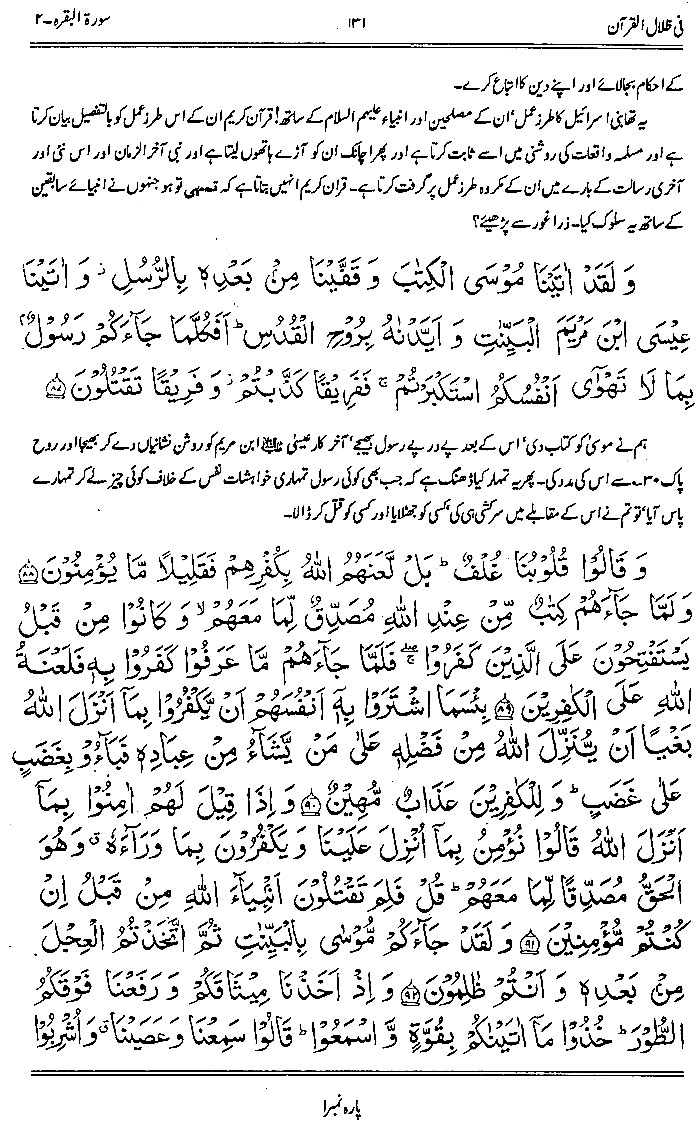 فی ظلال القرآن ۱۳۱ سورۃ البقرہ - ۲
کے احکام بجالائے اور اپنے دین کا اتباع کرے۔
یہ تھا بنی اسرائیل کا طرز عمل، ان کے مصلحین اور انبیاء علیہم السلام کے ساتھ! قرآن کریم ان کے اس طرز عمل کو بالتفصیل بیان کرتا
ہے اور مسلمہ واقعات کی روشنی میں اسے ثابت کرتا ہے اور پھر اچانک ان کو آڑے ہاتھوں لیتا ہے اور نبی آخر الزمان اور اس نئی اور
آخری رسالت کے بارے میں ان کے مکروہ طرز عمل پر گرفت کرتا ہے۔ قران کریم انہیں بتاتا ہے کہ تمہی تو ہو جنہوں نے انبیائے سابقین
کے ساتھ یہ سلوک کیا۔ ذرا غور سے پڑھیئے؟
وَ لَقَدْ اٰتَيْنَا مُوْسَى الْكِتٰبَ وَ قَفَّيْنَا مِنْۢ بَعْدِهٖ بِالرُّسُلِ ۫ وَ اٰتَيْنَا
عِيْسَى ابْنَ مَرْيَمَ الْبَيِّنٰتِ وَ اَيَّدْنٰهُ بِرُوْحِ الْقُدُسِ ؕ اَفَكُلَّمَا جَآءَكُمْ رَسُوْلٌۢ
بِمَا لَا تَهْوٰۤى اَنْفُسُكُمُ اسْتَكْبَرْتُمْ ۚ فَفَرِيْقًا كَذَّبْتُمْ ۫ وَ فَرِيْقًا تَقْتُلُوْنَ ﴿۸۷﴾
ہم نے موسیٰ کو کتاب دی، اس کے بعد پے در پے رسول بھیجے، آخر کار عیسیٰ علیہ السلام ابن مریم کو روشن نشانیاں دے کر بھیجا اور روح
پاک ۳۰؂ سے اس کی مدد کی۔ پھر یہ تمہار کیا ڈھنگ ہے کہ جب بھی کوئی رسول تمہاری خواہشات نفس کے خلاف کوئی چیز لے کر تمہارے
پاس آیا، تو تم نے اس کے مقابلے میں سرکشی ہی کی، کسی کو جھٹلایا اور کسی کو قتل کر ڈالا۔
وَ قَالُوْا قُلُوْبُنَا غُلْفٌ ؕ بَلْ لَّعَنَهُمُ اللّٰهُ بِكُفْرِهِمْ فَقَلِيْلًا مَّا يُؤْمِنُوْنَ ﴿۸۸﴾
وَ لَمَّا جَآءَهُمْ كِتٰبٌ مِّنْ عِنْدِ اللّٰهِ مُصَدِّقٌ لِّمَا مَعَهُمْ ۙ وَ كَانُوْا مِنْ قَبْلُ
يَسْتَفْتِحُوْنَ عَلَى الَّذِيْنَ كَفَرُوْا ۖۚ فَلَمَّا جَآءَهُمْ مَّا عَرَفُوْا كَفَرُوْا بِهٖ ؗ فَلَعْنَةُ
اللّٰهِ عَلَى الْكٰفِرِيْنَ ﴿۸۹﴾ بِئْسَمَا اشْتَرَوْا بِهٖۤ اَنْفُسَهُمْ اَنْ يَّكْفُرُوْا بِمَاۤ اَنْزَلَ اللّٰهُ
بَغْيًا اَنْ يُّنَزِّلَ اللّٰهُ مِنْ فَضْلِهٖ عَلٰى مَنْ يَّشَآءُ مِنْ عِبَادِهٖ ۚ فَبَآءُوْ بِغَضَبٍ
عَلٰى غَضَبٍ ؕ وَ لِلْكٰفِرِيْنَ عَذَابٌ مُّهِيْنٌ ﴿۹۰﴾ وَ اِذَا قِيْلَ لَهُمْ اٰمِنُوْا بِمَاۤ
اَنْزَلَ اللّٰهُ قَالُوْا نُؤْمِنُ بِمَاۤ اُنْزِلَ عَلَيْنَا وَ يَكْفُرُوْنَ بِمَا وَرَآءَهٗ ۗ وَ هُوَ
الْحَقُّ مُصَدِّقًا لِّمَا مَعَهُمْ ؕ قُلْ فَلِمَ تَقْتُلُوْنَ اَنْۢبِيَآءَ اللّٰهِ مِنْ قَبْلُ اِنْ
كُنْتُمْ مُّؤْمِنِيْنَ ﴿۹۱﴾ وَ لَقَدْ جَآءَكُمْ مُّوْسٰى بِالْبَيِّنٰتِ ثُمَّ اتَّخَذْتُمُ الْعِجْلَ
مِنْۢ بَعْدِهٖ وَ اَنْتُمْ ظٰلِمُوْنَ ﴿۹۲﴾ وَ اِذْ اَخَذْنَا مِيْثَاقَكُمْ وَ رَفَعْنَا فَوْقَكُمُ
الطُّوْرَ ؕ خُذُوْا مَاۤ اٰتَيْنٰكُمْ بِقُوَّةٍ وَّ اسْمَعُوْا ؕ قَالُوْا سَمِعْنَا وَ عَصَيْنَا ۗ وَ اُشْرِبُوْا
پارہ نمبر ۱